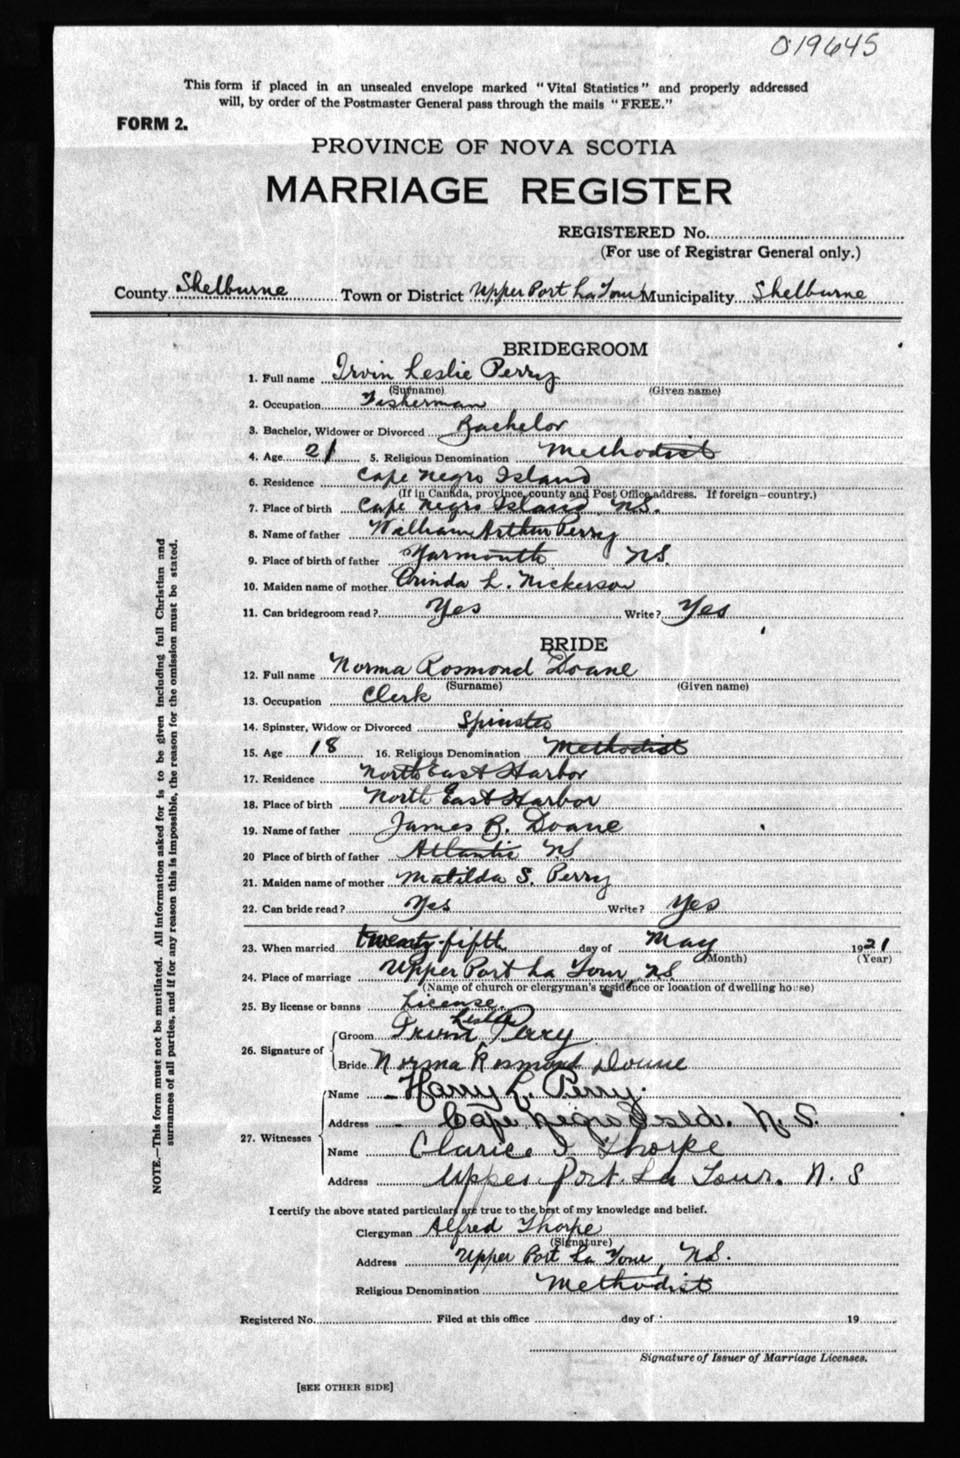 019645
This form if placed in an unsealed envelope marked "Vital Statistics" and properly addressed
will, by order of the Postmaster General pass through the mails "FREE."
FORM 2.
PROVINCE OF NOVA SCOTIA
MARRIAGE REGISTER
REGISTERED No.
(For use of Registrar General only.)
County Shelburne Town or District Upper Port La Tour Municipality Shelburne
BRIDEGROOM
1. Full name Irvin Leslie Perry
(Surname) (Given name)
2. Occupation Fisherman
3. Bachelor, Widower or Divorced Bachelor
4. Age 21 5. Religious Denomination Methodist
6. Residence Cape Negro Island
(If in Canada, province, county and Post Office address. If foreign—country.)
7. Place of birth Cape Negro Island N.S.
8. Name of father William Arthur Perry
9. Place of birth of father Yarmouth NS.
10. Maiden name of mother Orinda L. Nickerson
11. Can bridegroom read? Yes Write? Yes
BRIDE
12. Full name Norma Rosmond Doane
(Surname) (Given name)
13. Occupation Clerk
14. Spinster, Widow or Divorced Spinster
15. Age 18 16. Religious Denomination Methodist
17. Residence North East Harbor
18. Place of birth North East Harbor
19. Name of father James B. Doane
20 Place of birth of father Atlantic NS
21. Maiden name of mother Matilda S. Perry
22. Can bride read? Yes Write? Yes
23. When married twenty-fifth day of May 1921
(Month) (Year)
24. Place of marriage Upper Port La Tour NS
(Name of church or clergyman's residence or location of dwelling house)
25. By license or banns License
Leslie
26. Signature of Groom Irvin Perry
Bride Norma Rosmond Doane
27. Witnesses Name Harry L. Perry.
Address Cape Negro Isld. N.S.
Name Clarice I Thorpe
Address Upper Port La Tour. N.S
I certify the above stated particulars are true to the best of my knowledge and belief.
Clergyman Alfred Thorpe
(Signature)
Address Upper Port La Tour, NS.
Religious Denomination Methodist
Registered No. Filed at this office day of 19
Signature of Issuer of Marriage Licenses.
[SEE OTHER SIDE]
NOTE.—This form must not be mutilated. All information asked for is to be given including full Christian and
surnames of all parties, and if for any reason this is impossible, the reason for the omission must be stated.